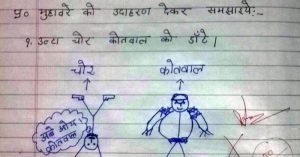 प्र० मुहावरे को उदाहरण देकर समझाइये:-
१. उल्टा चोर कोतवाल को डाँटे।
चोर कोतवाल
अबे ओय
कोतवाल